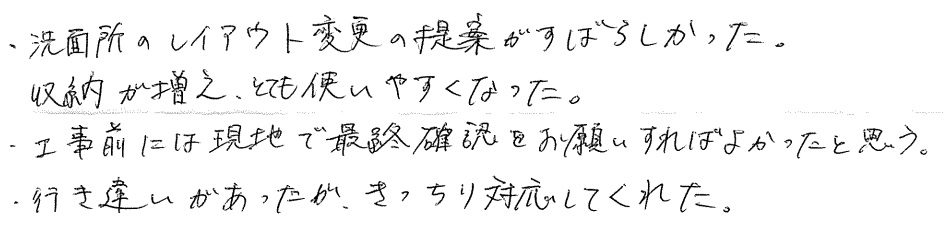 ・洗面所のレイアウト変更の提案がすばらしかった。
収納が増え、とても使いやすくなった。
・工事前には現地で最終確認をお願いすればよかったと思う。
・行き違いがあったが、きっちり対応してくれた。